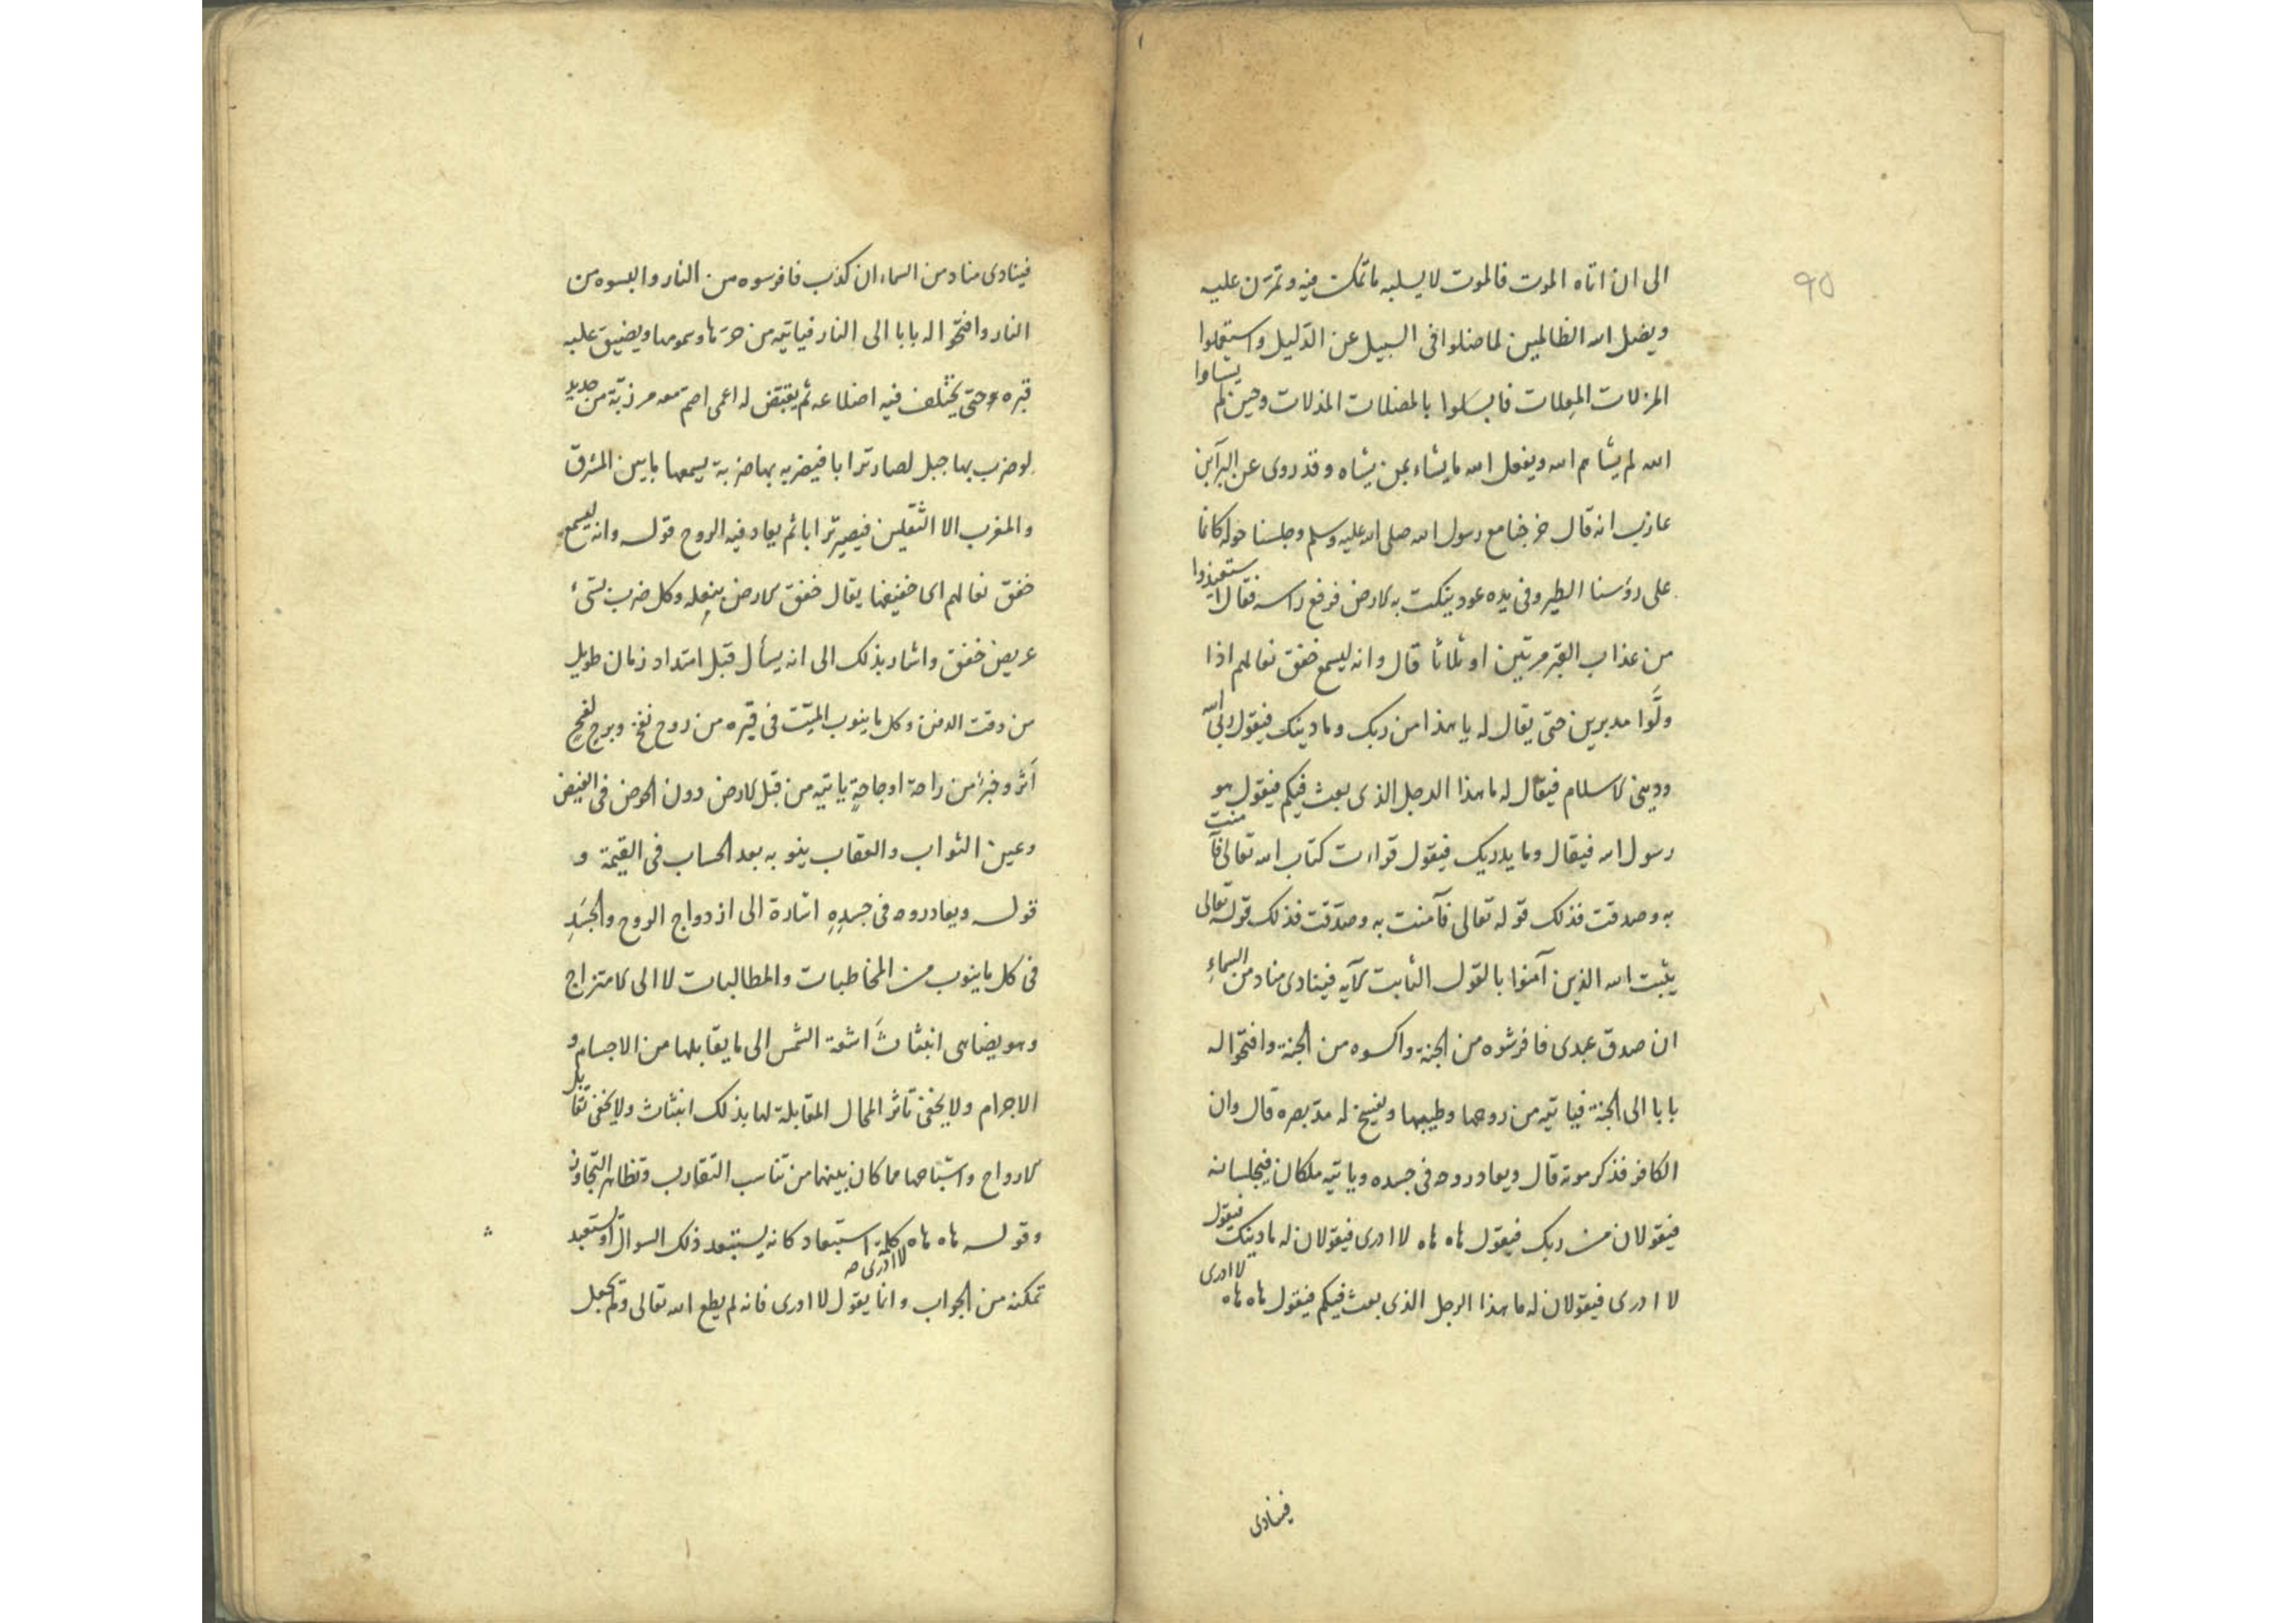 ٩٥
الى ان اتاه الموت فالموت لا يسلبه ما تمكث فيه وتمرّن عليه
ويضل الله الظالمين لما ضلوا فى السبيل عن الدّليل واستعملوا
المزلات فابسلوا بالمضلات المذلات وحين لم يشاوا
الله لم يشأهم الله ويفعل الله ما يشاء بمن يشاء وقد روى عن البرآبن
عازب انه قال خرجنا مع رسول الله صلى الله عليه وسلم وجلسنا حوله كانما
على رؤسنا الطير وفى يده عود ينكت به الارض فرفع راسه فقال استعيذوا
من عذاب القبر مرتين او ثلاثا قال وانه ليسمع خفق نعالهم اذا
ولَّوا مدبرين حتى يقال له يا هذا من ربك وما دينك فيقول ربى الله
ودينى الاسلام فيقال له ما هذا الرجل الذى بعث فيكم فيقول هو
رسول الله فيقال وما يدريك فيقول قراءت كتاب الله تعالى فآمنت
به وصدقت فذلك قوله تعالى فآمنت به وصدّقت فذلك قوله تعالى
يثبت الله الذين آمنوا بالقول الثابت الآيه فينادى مناد من السماء
ان صدق عبدى فافرشوه من الجنة واكسوه من الجنة وافتحوا له
بابا الى الجنة فياتيه من روحها وطيبها ويفسح له مدّ بصره قال وان
الكافر فذكر موته قال ويعاد روحه فى جسده وياتيه ملكان فيجلسانه
فيقولان من ربك فيقول هاه هاه لا ادرى فيقولان له ما دينك فيقول
لا ادرى فيقولان له ما هذا الرجل الذى بعث فيكم فيقول هاه هاه لا ادرى
فينادى
فينادى مناد من السماء ان كذب فافرسوه من النار والبسوه من
النار وافتحوا له بابا الى النار فياتيه من حرّها وسمومها ويضيق عليه
قبره حتى يختلف فيه اضلاعه ثم يقيض له اعمى اصم معه مرزبّة من حديد
لو ضرب بها جبل لصار ترابا فيضربه بها ضربة يسمعها ما بين المشرق
والمغرب الا الثقلين فيصير ترابا ثم يعاد فيه الروح قوله وانه ليسمع
خفق نعالهم اى خفيفها يقال خفق الارض بنعله وكل ضرب بشئ
عريض خفق واشار بذلك الى انه يسأل قبل امتداد زمان طويل
من وقت الدفن وكل ما ينوب الميّت فى قبره من روح نفخ
أثر وخبر من راحة او جاحةٍ ياتيه من قبل الارض دون الحوض فى الفيض
وعين الثواب والعقاب ينو به بعد الحساب فى القيمة و
قوله ويعاد روحه فى جسدِهِ اشارة الى ازدواج الروح والجسَدِ
فى كل ما ينوب من المخاطبات والمطالبات لا الى الامتزاج
وهو يضاهى انبثاثَ اشعة الشمس الى ما يقابلها من الاجسام و
الاجرام ولا يخفى تاثر المحال المقابلة لها بذلك انبثاث ولا يخفى تقابل
الارواح واشباحها مما كان بينهما من تناسب التقارب وتظاهر التجاون
وقوله هاه هاه كلمة استبعاد كانه يستبعد ذلك السوال او استبعد
تمكنه من الجواب وانما يقول لا ادرى لا ادرى فانه لم يطع الله تعالى ولم يجعل